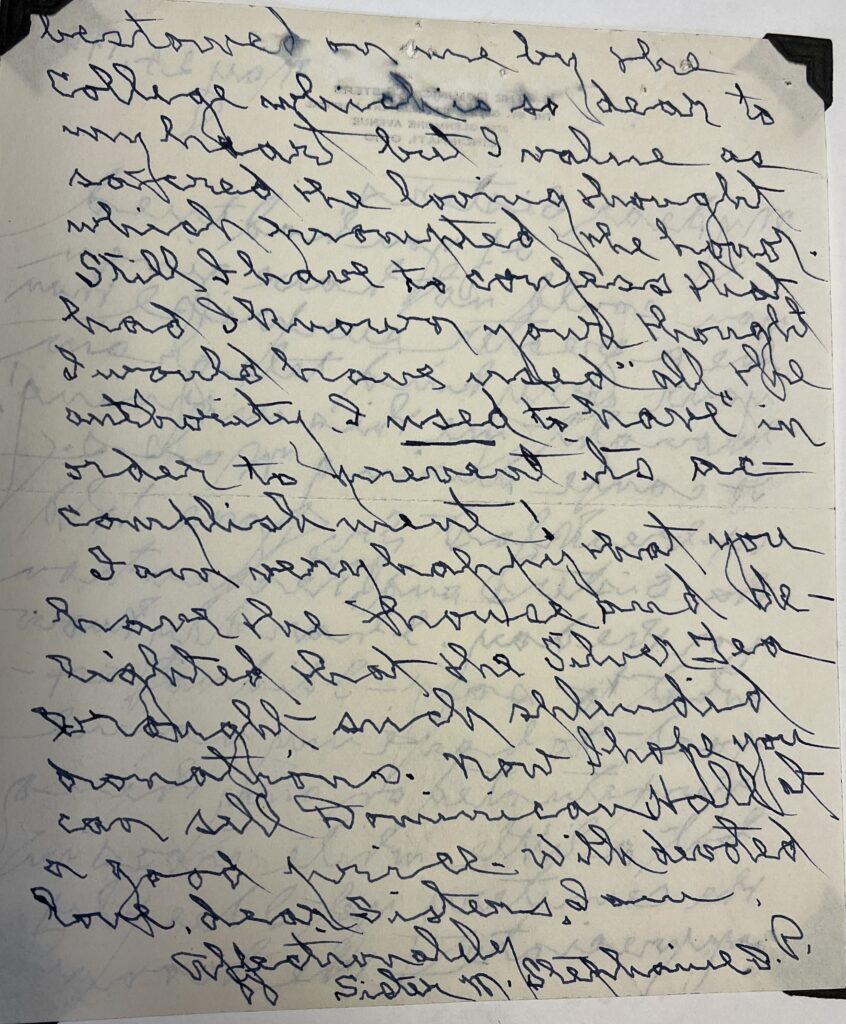 bestowed on me by the
college which is so dear to
my heart but I value as
sacred the loving thought
which prompted the honor.
Still, I have to confess that
had I known your thought
I would have used "all the
authority I used to have" in
order to prevent its ac-
complishment!
I am very happy that you
have the house and de-
lighted that the Silver Tea
brought such splendid
donations. Now I hope you
can sell Dominican Hall at
a good price. With devoted
love, dear Sisters, I am,
Affectionately
Sister M. Stephanie O.P.